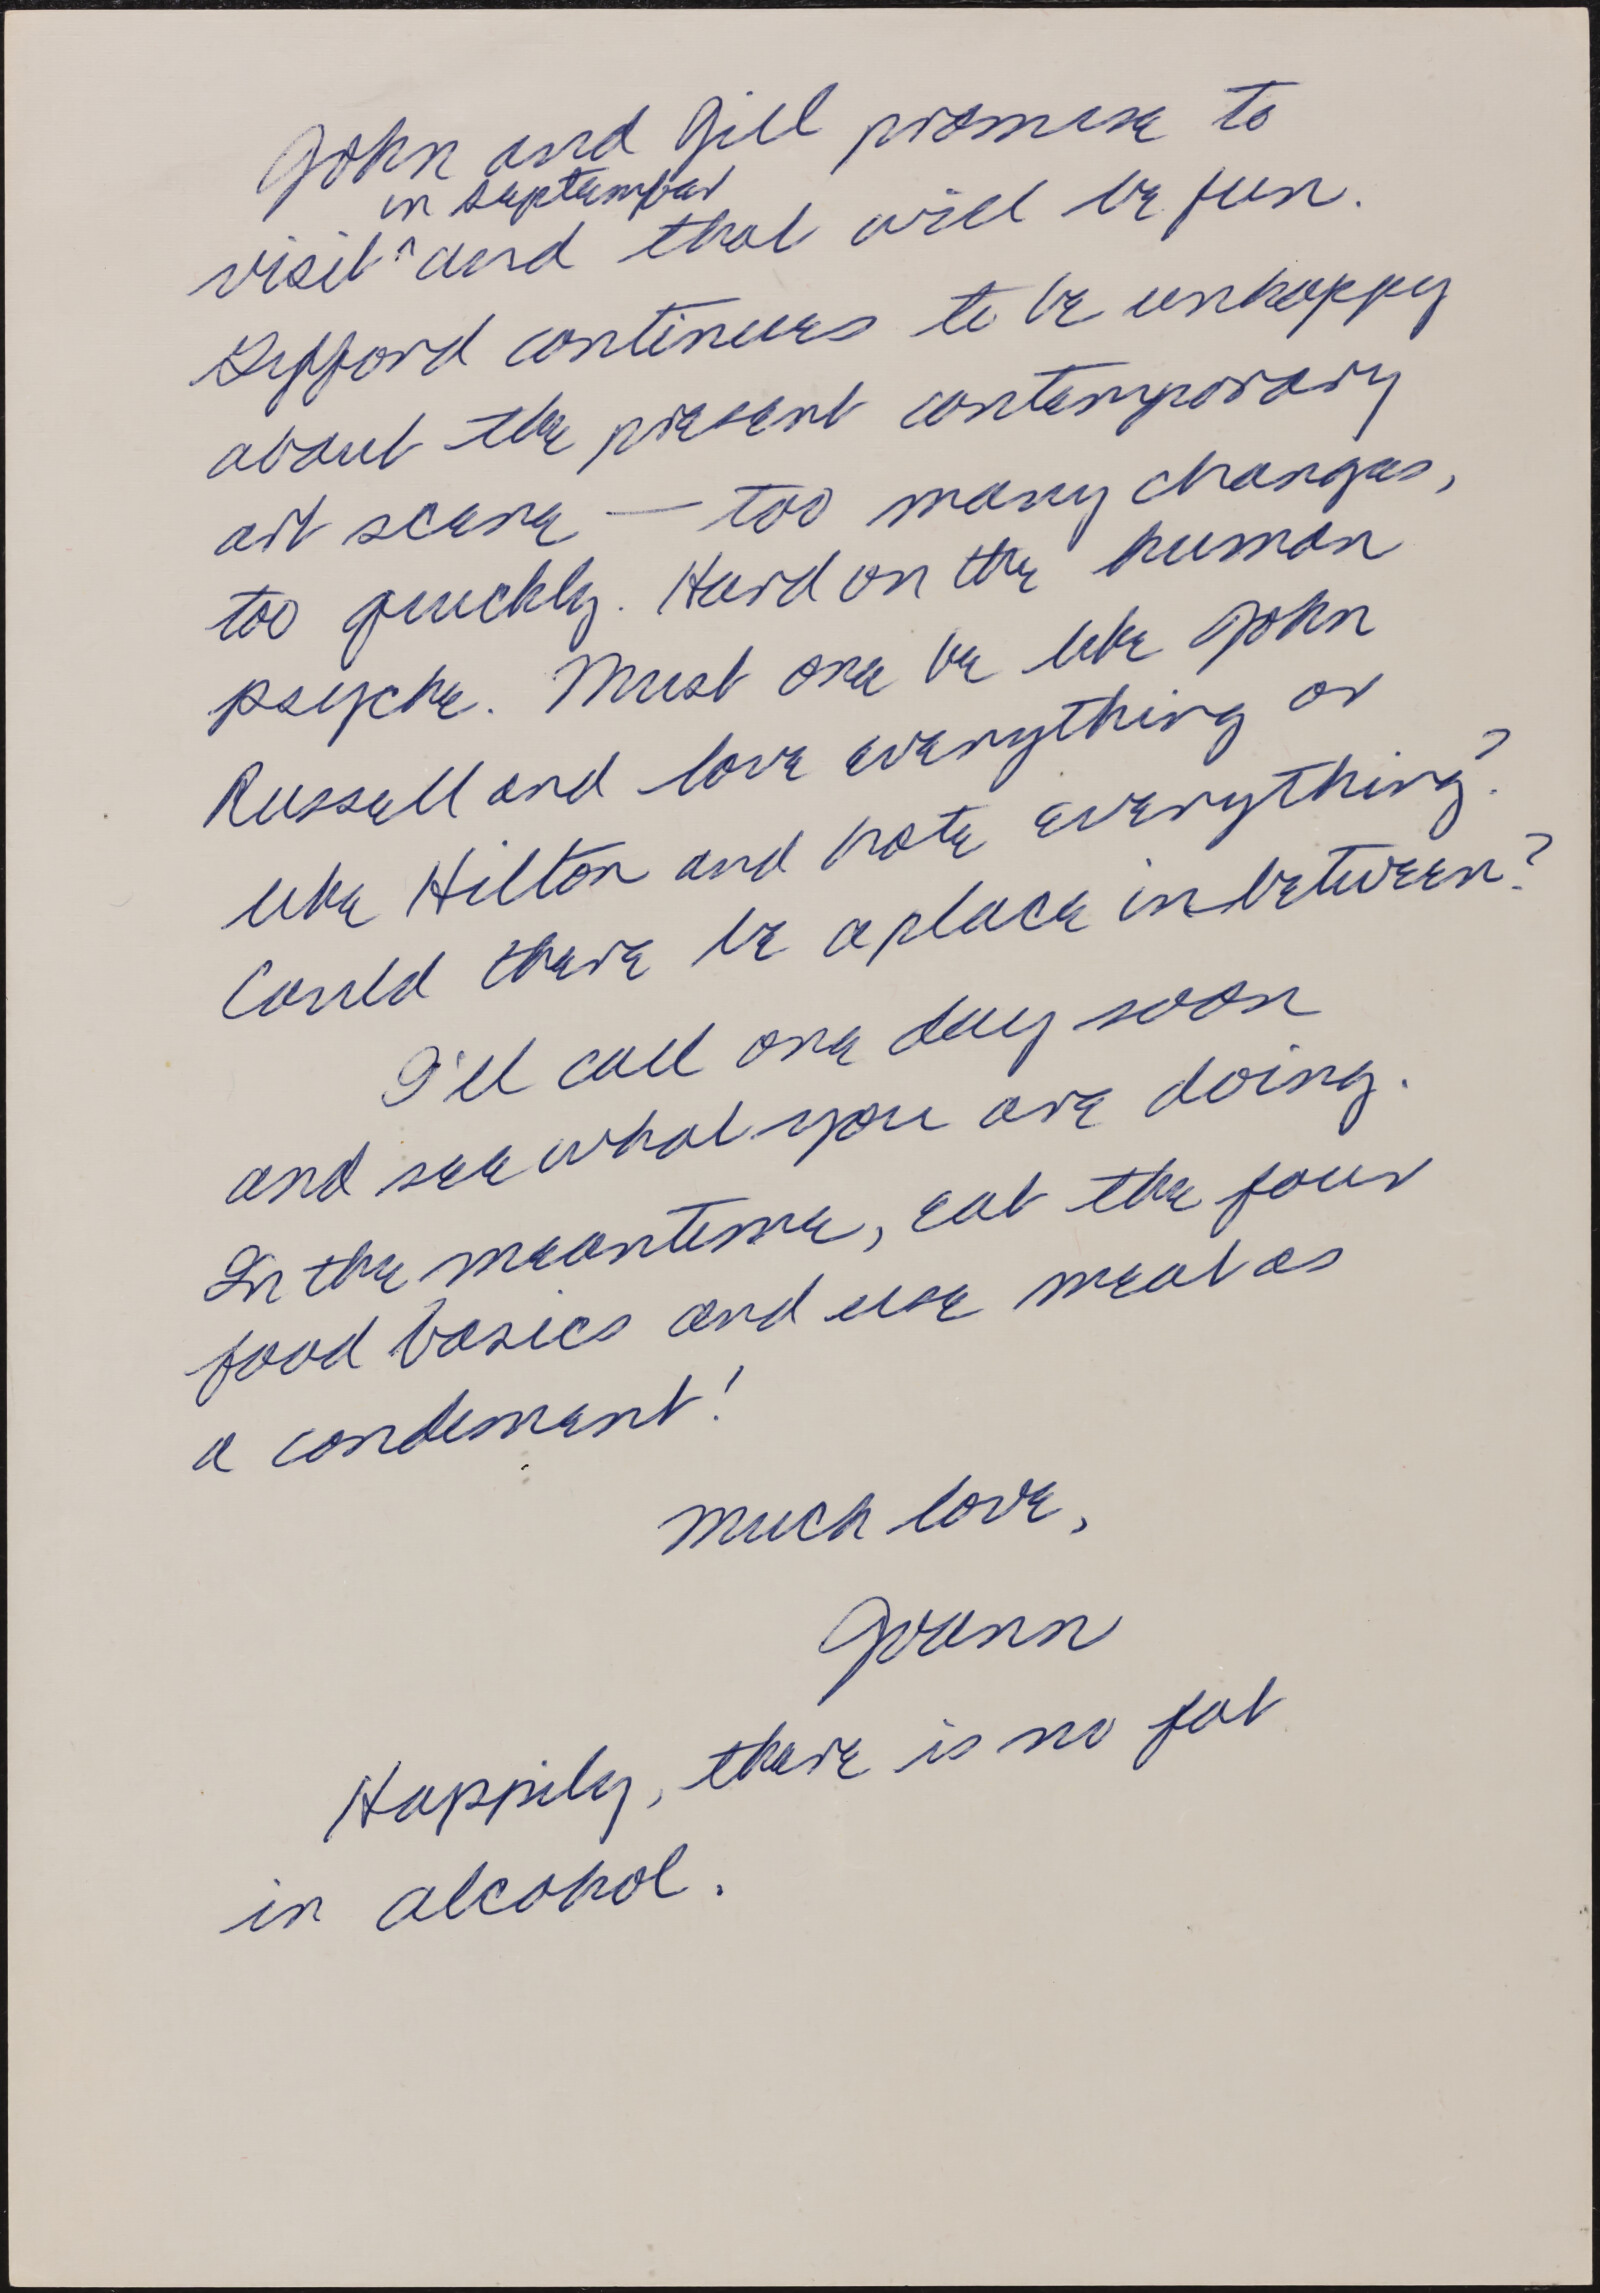 John and Jill promise to
in september
visit ^ and that will be fun.
Gifford continues to be unhappy
about the present contemporary
art scene — too many changes,
too quickly. Hard on the human
psyche. Must one be like John
Russell and love everything or
like Hilton and hate everything?
Could there be a place in between?
I'll call one day soon
and see what you are doing.
In the meantime, eat the four
food basics and use meat as
a condiment!
Much love,
Joann
Happily, there is no fat
in alcohol.